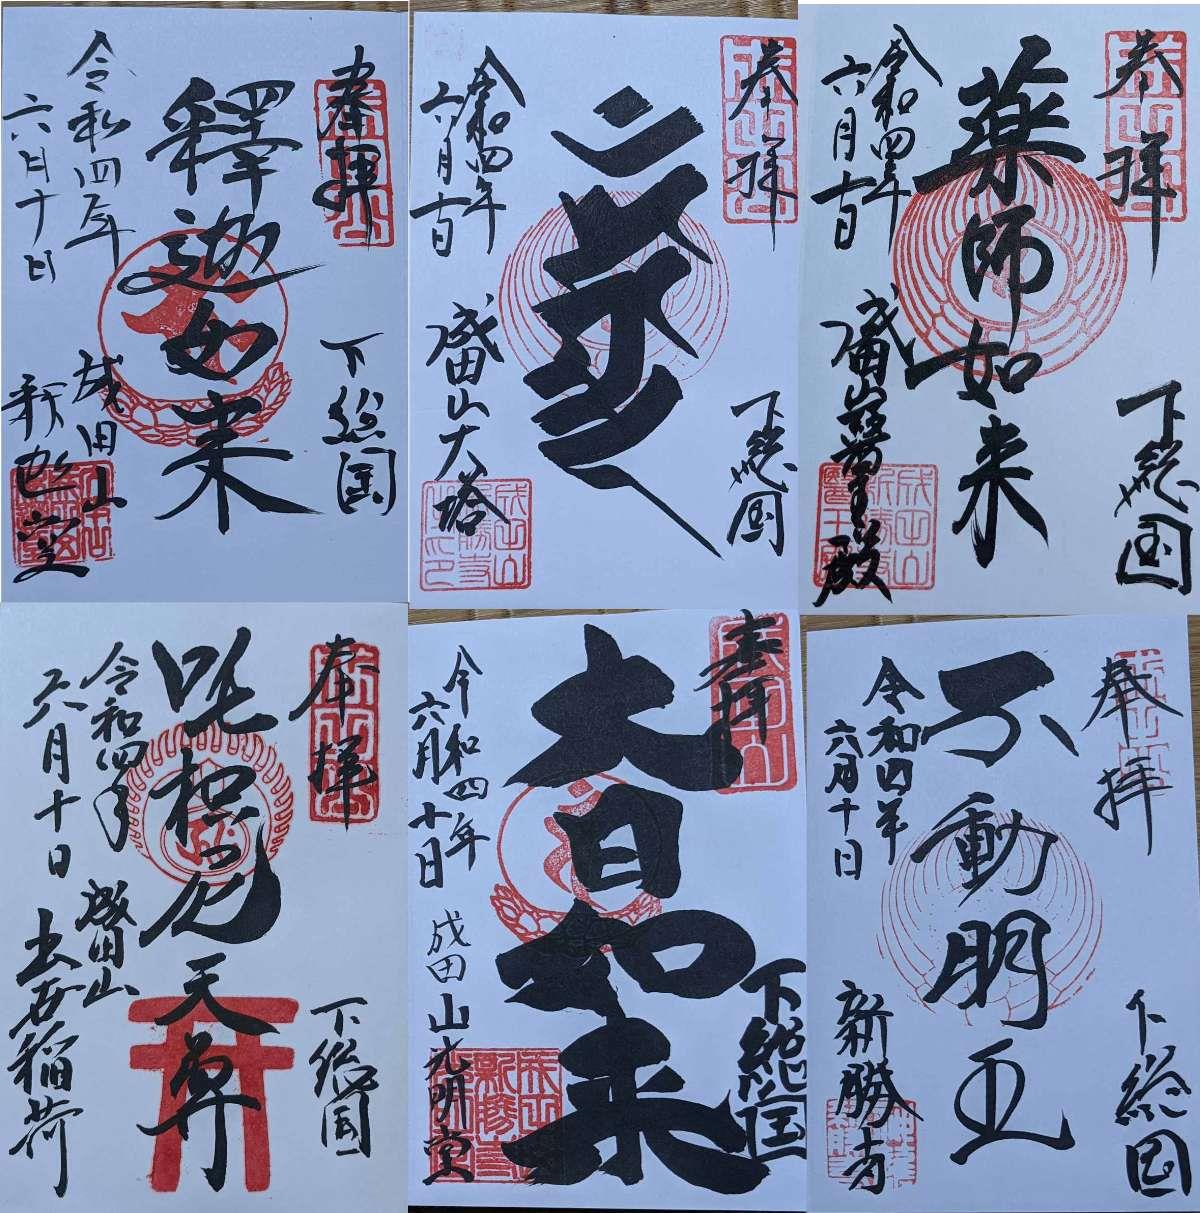 奉拝
下総国
釋迦如来
令和四年
六月十日
成田山
釈迦堂
奉拝
下総国
令和四年
六月十日
成田山大塔
奉拝
下総国
薬師如来
令和四年
六月十日
成田山醫王殿
奉拝
下総国
吒枳尼
天尊
令和四年
六月十日
成田山
出世稲荷
奉拝
下総国
大日如来
令和四年
六月十日
成田山光明堂
奉拝
下総国
不動明王
令和四年
六月十日
新勝寺